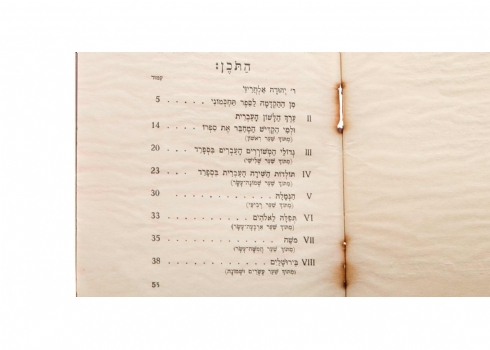 הַתֹּכֶן:
עמוד
ר׳ יְהוּדָה אַלְחֲרִיזִי
מִן הַהַקְדָּמָה לְסֵפֶר תַּחְכְּמוֹנִי . . . . . 5
II עֵרֶךְ הַלָּשׁוֹן הָעִבְרִית
וּלְמִי הִקְדִּישׁ הַמְחַבֵּר אֶת סִפְרוֹ . . 14
(מִתּוֹךְ שַׁעַר רִאשׁוֹן)
III גְּדוֹלֵי הַמְשׁוֹרְרִים הָעִבְרִים בִּסְפָרַד . . 20
(מִתּוֹךְ שַׁעַר שְׁלִישִׁי)
IV תּוֹלְדוֹת הַשִּׁירָה הָעִבְרִית בִּסְפָרַד . . 23
(מִתּוֹךְ שַׁעַר שְׁמוֹנָה־עָשָׂר)
V הַנְּמָלָה . . . . . . . . . . . 30
(מִתּוֹךְ שַׁעַר רְבִיעִי)
VI תְּפִלָּה לֵאלֹהִים . . . . . . . . . 33
(מִתּוֹךְ שַׁעַר אַרְבָּעָה־עָשָׂר)
VII מֹשֶׁה . . . . . . . . . . . . 35
(מִתּוֹךְ שַׁעַר חֲמִשָּׁה־עָשָׂר)
VIII בִּירוּשָׁלַיִם . . . . . . . . . . 38
(מִתּוֹךְ שַׁעַר עֶשְׂרִים וּשְׁמוֹנָה)